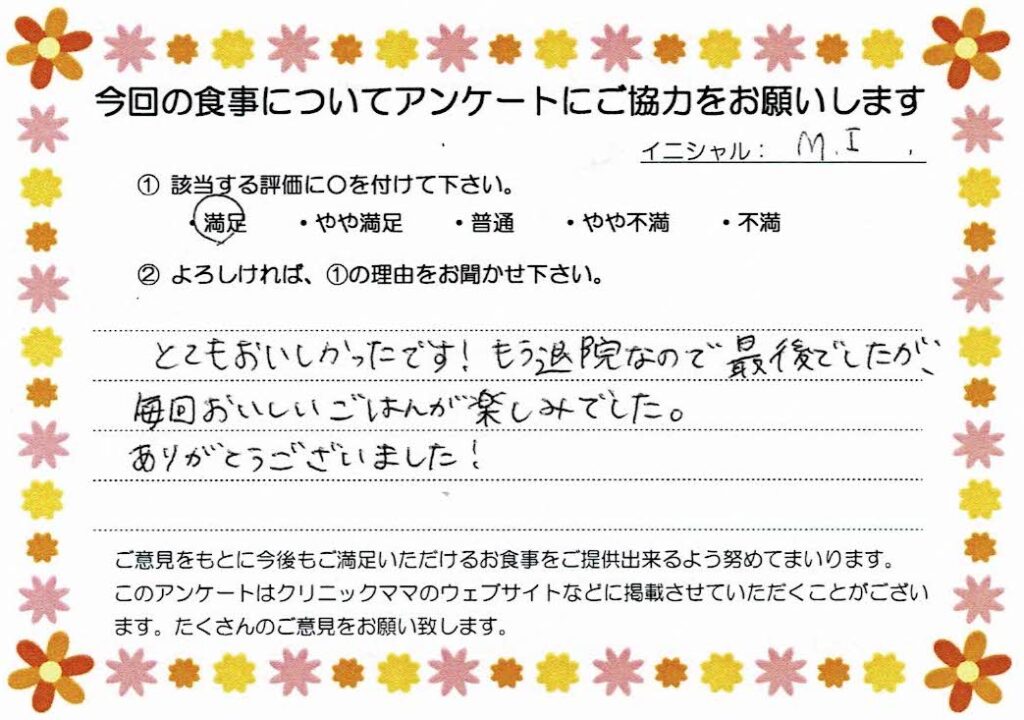 今回の食事についてアンケートにご協力をお願いします
イニシャル： M.I
① 該当する評価に〇を付けて下さい。
・満足 ・やや満足 ・普通 ・やや不満 ・不満
② よろしければ、①の理由をお聞かせ下さい。
とてもおいしかったです！もう退院なので最後でしたが、
毎回おいしいごはんが楽しみでした。
ありがとうございました！
ご意見をもとに今後もご満足いただけるお食事をご提供出来るよう努めてまいります。
このアンケートはクリニックママのウェブサイトなどに掲載させていただくことがござい
ます。たくさんのご意見をお願い致します。